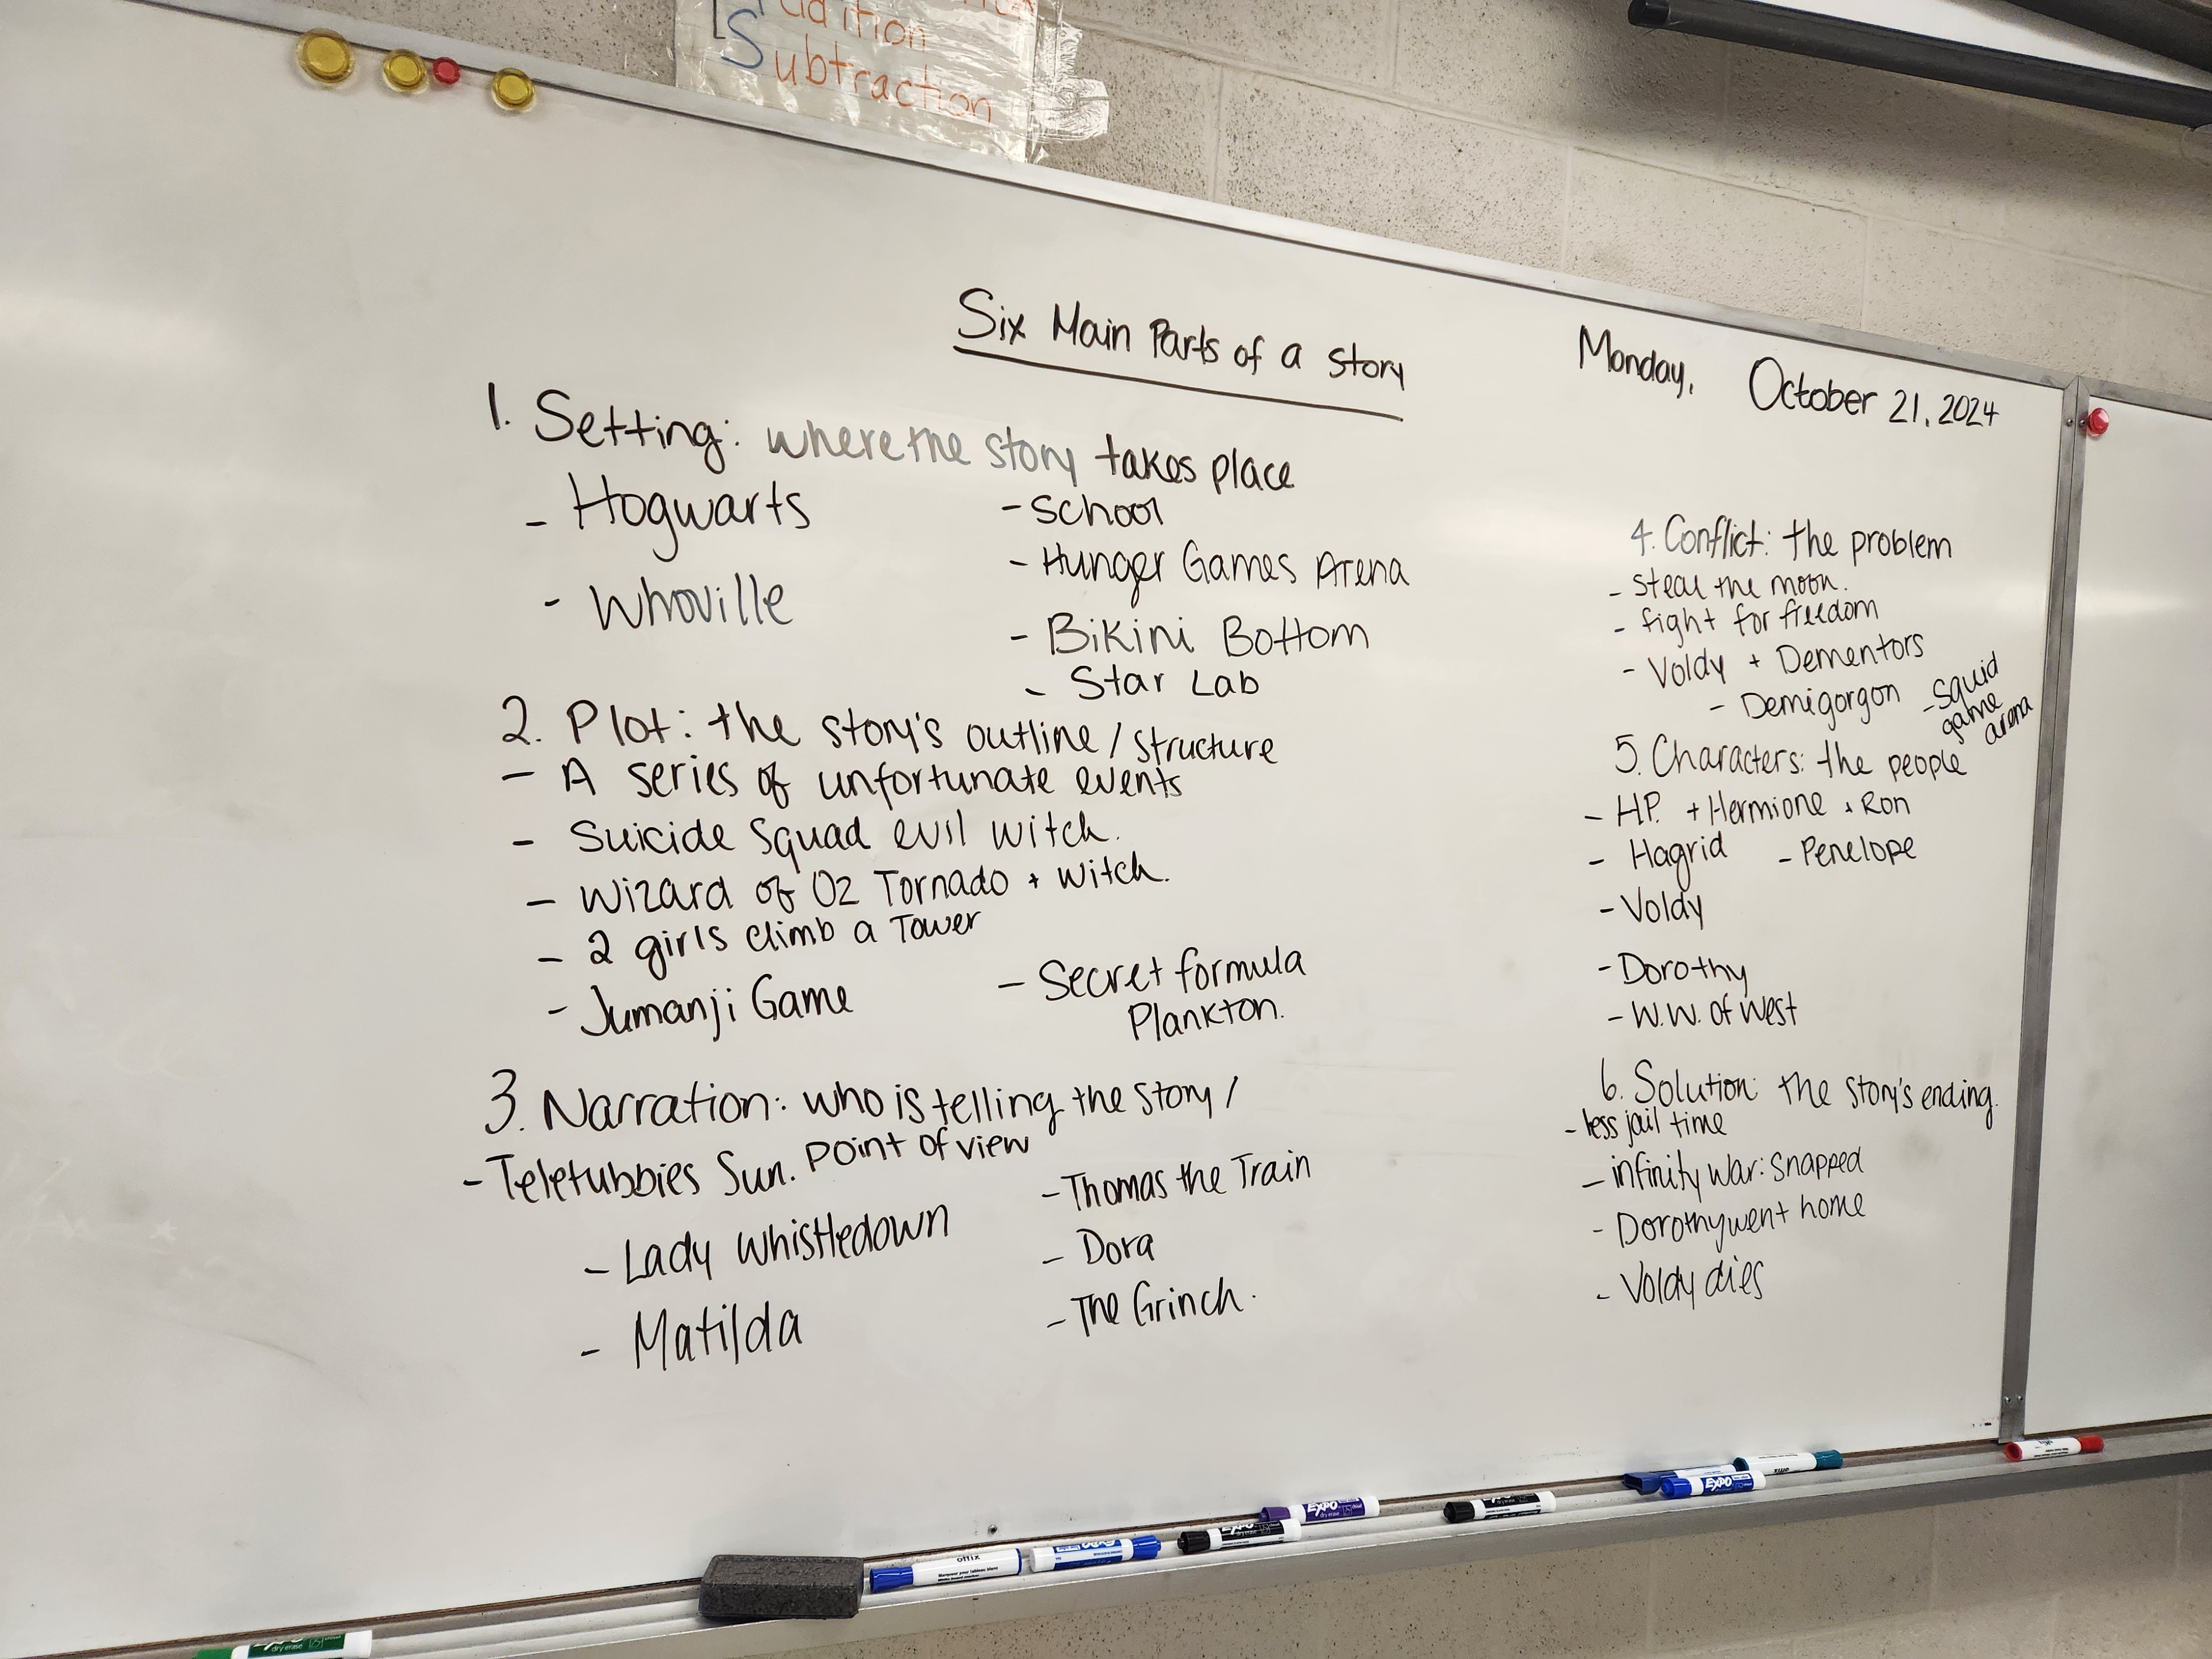 dition
Subtraction
Six Main Parts of a story
Monday, October 21, 2024
1. Setting: where the story takes place
- Hogwarts
- Whoville
- School
- Hunger Games Arena
- Bikini Bottom
- Star Lab
2. Plot: the story's outline / structure
- A series of unfortunate events
- Suicide Squad evil witch.
- Wizard of Oz Tornado + witch.
- 2 girls climb a Tower
- Jumanji Game
- Secret formula
Plankton.
3. Narration: who is telling the story /
point of view
- Teletubbies Sun.
- Lady Whistledown
- Matilda
- Thomas the Train
- Dora
- The Grinch.
4. Conflict: the problem
- steal the moon.
- fight for freedom
- Voldy + Dementors
- Demigorgon
- squid
game
arena
5. Characters: the people
- HP. + Hermione + Ron
- Hagrid
- Penelope
- Voldy
- Dorothy
- W.W. of West
6. Solution: the story's ending.
- less jail time
- infinity war: snapped
- Dorothy went home
- Voldy dies
EXPO
dry erase
offix
EXPO
EXPO
dry erase
EXPO